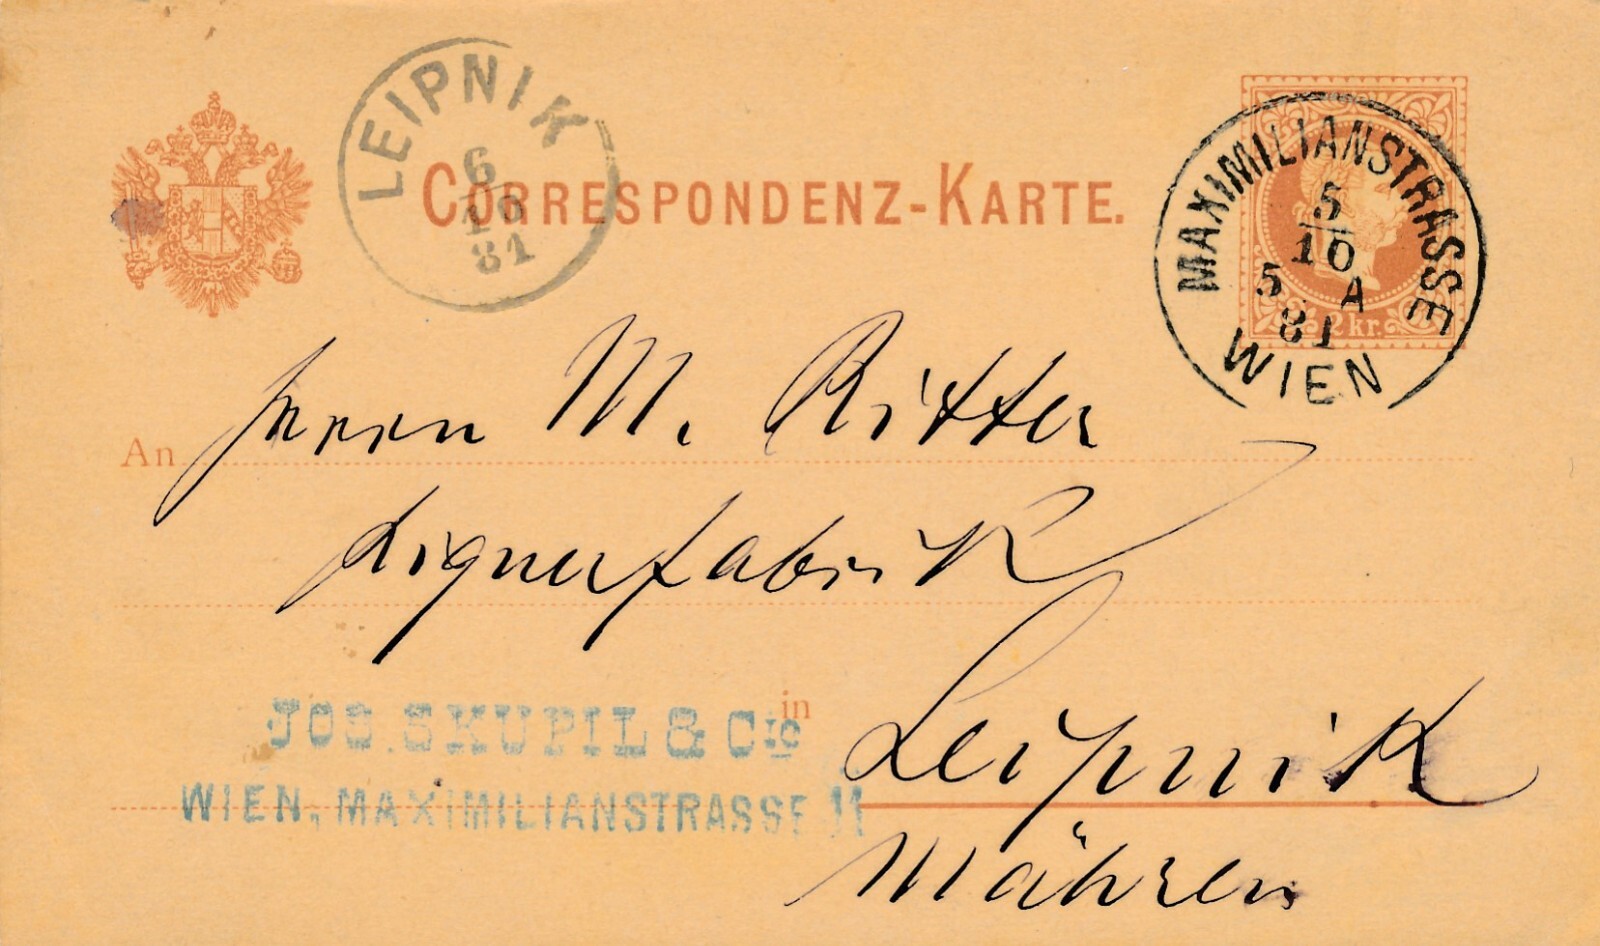 LEIPNIK
6
10
81
CORRESPONDENZ-KARTE.
MAXIMILIANSTRASSE
5
10
5 A
81
WIEN
2 kr.
An Herrn M. Ritter
Liqueurfabrik
in Leipnik
Mähren
JOS. SKUPIL & Cie
WIEN, MAXIMILIANSTRASSE 11